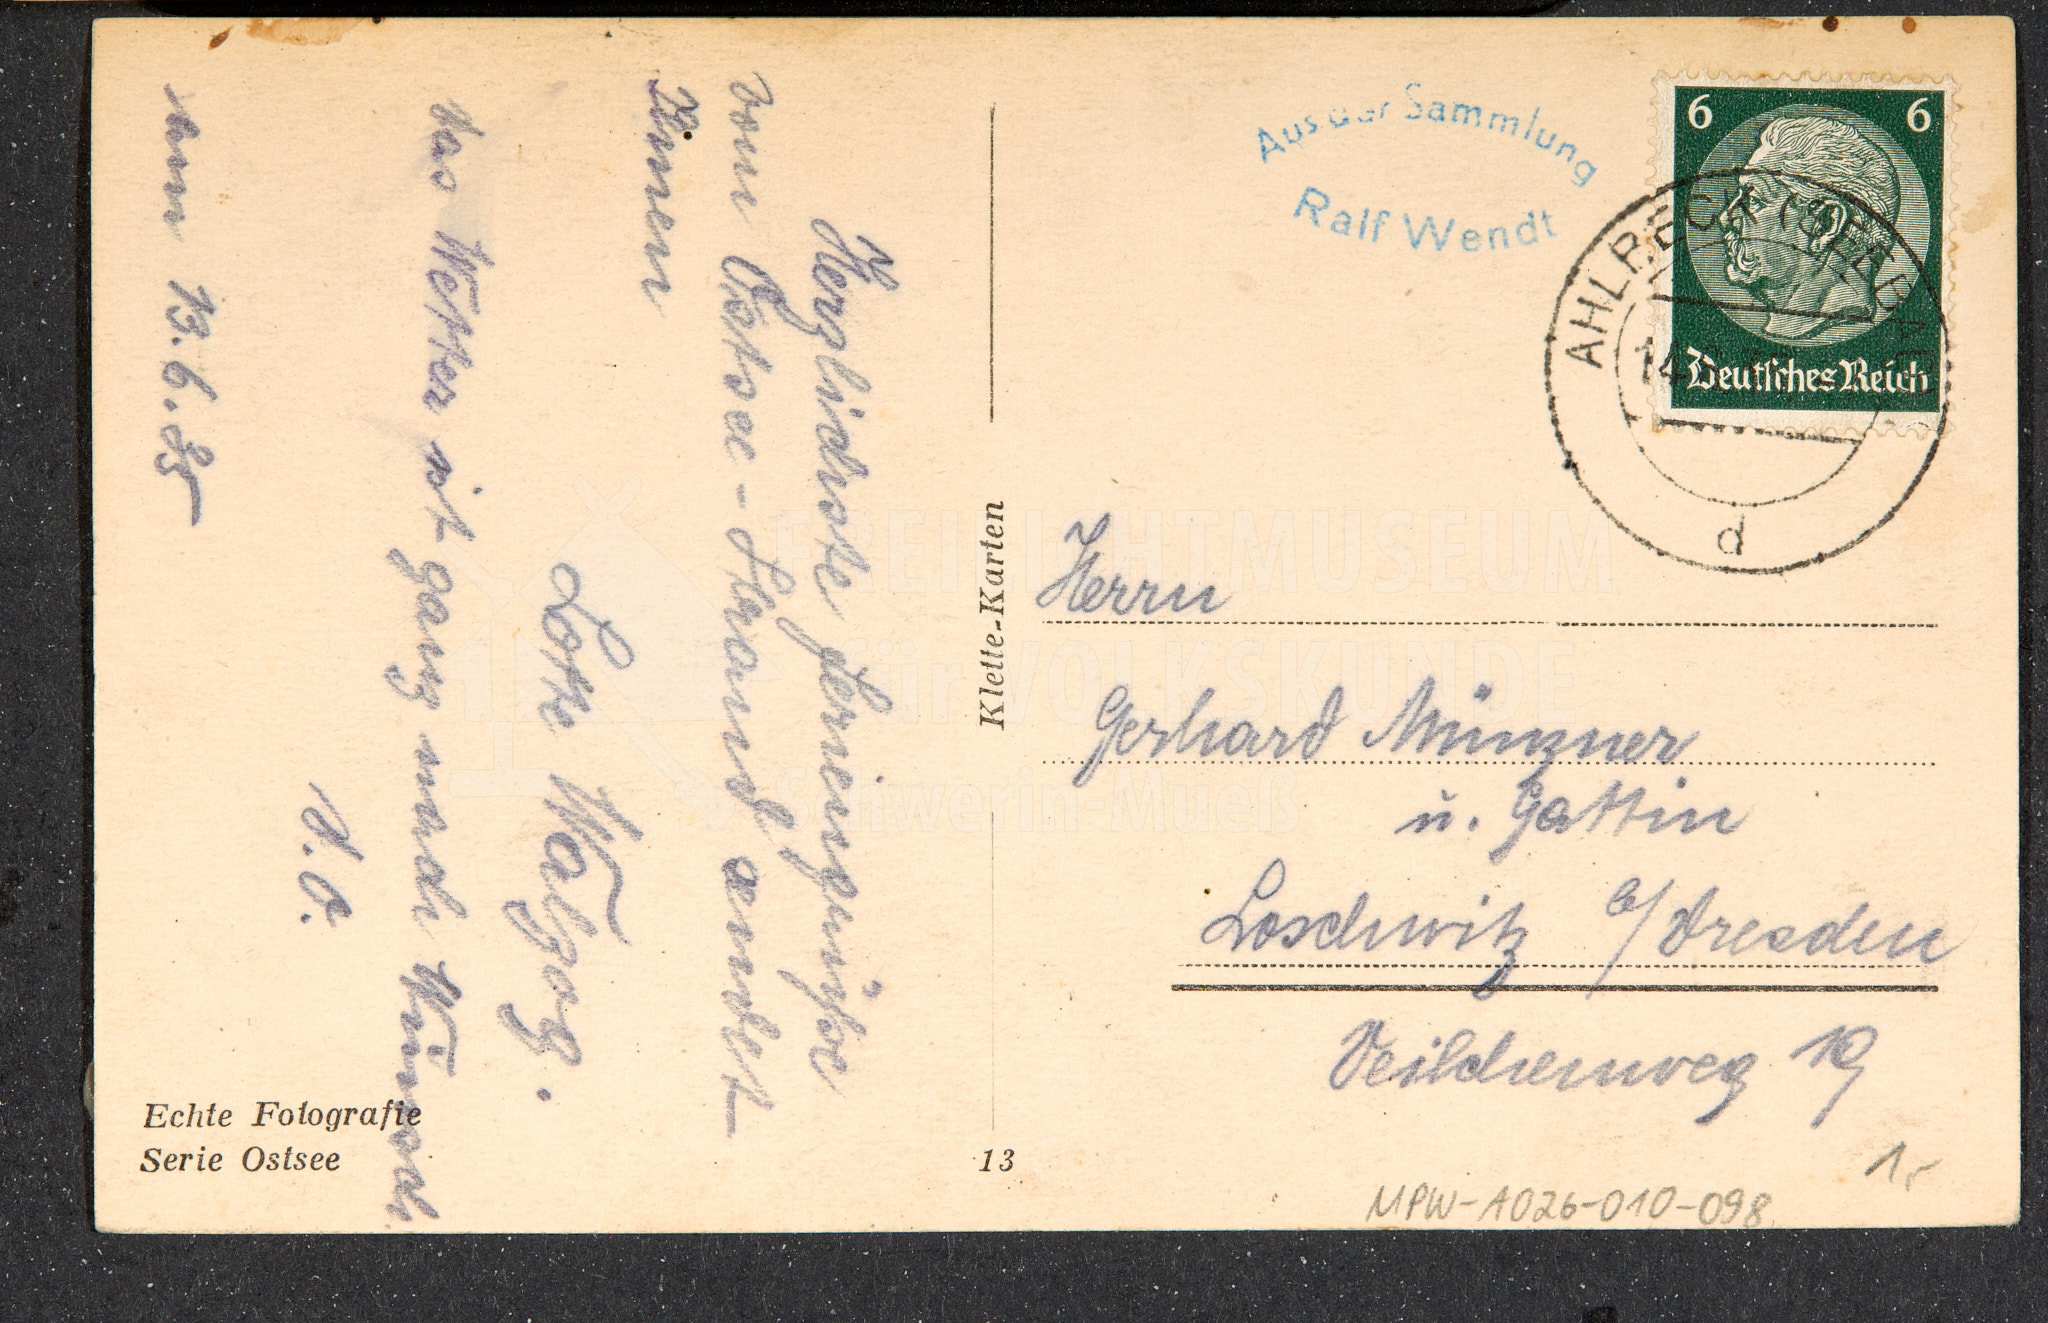 Herzlichste Feriengrüße
vom Ostsee-Strand sendet
Ihnen
Lotte Walzog.
das Wetter ist ganz nach Wunsch
D. O.
den 13. 6. 35
Echte Fotografie
Serie Ostsee
Klette-Karten
13
Aus der Sammlung
Ralf Wendt
6 6
Deutsches Reich
AHLBECK (SEEBAD)
14
d
Herrn
Gerhard Münzner
u. Gattin
Loschwitz b/Dresden
Veilchenweg 19
1,-
MPW-A026-010-098
FREILICHTMUSEUM
für VOLKSKUNDE
Schwerin-Mueß